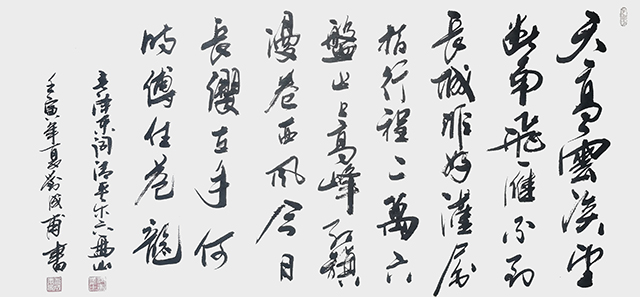 天高雲淡望
断南飛雁不到
長城非好漢屈
指行程二萬六
盤山上高峰紅旗
漫卷西風今日
長纓在手何
時縛住蒼龍
毛澤東詞清平乐六盘山
壬寅年夏劉成甫書